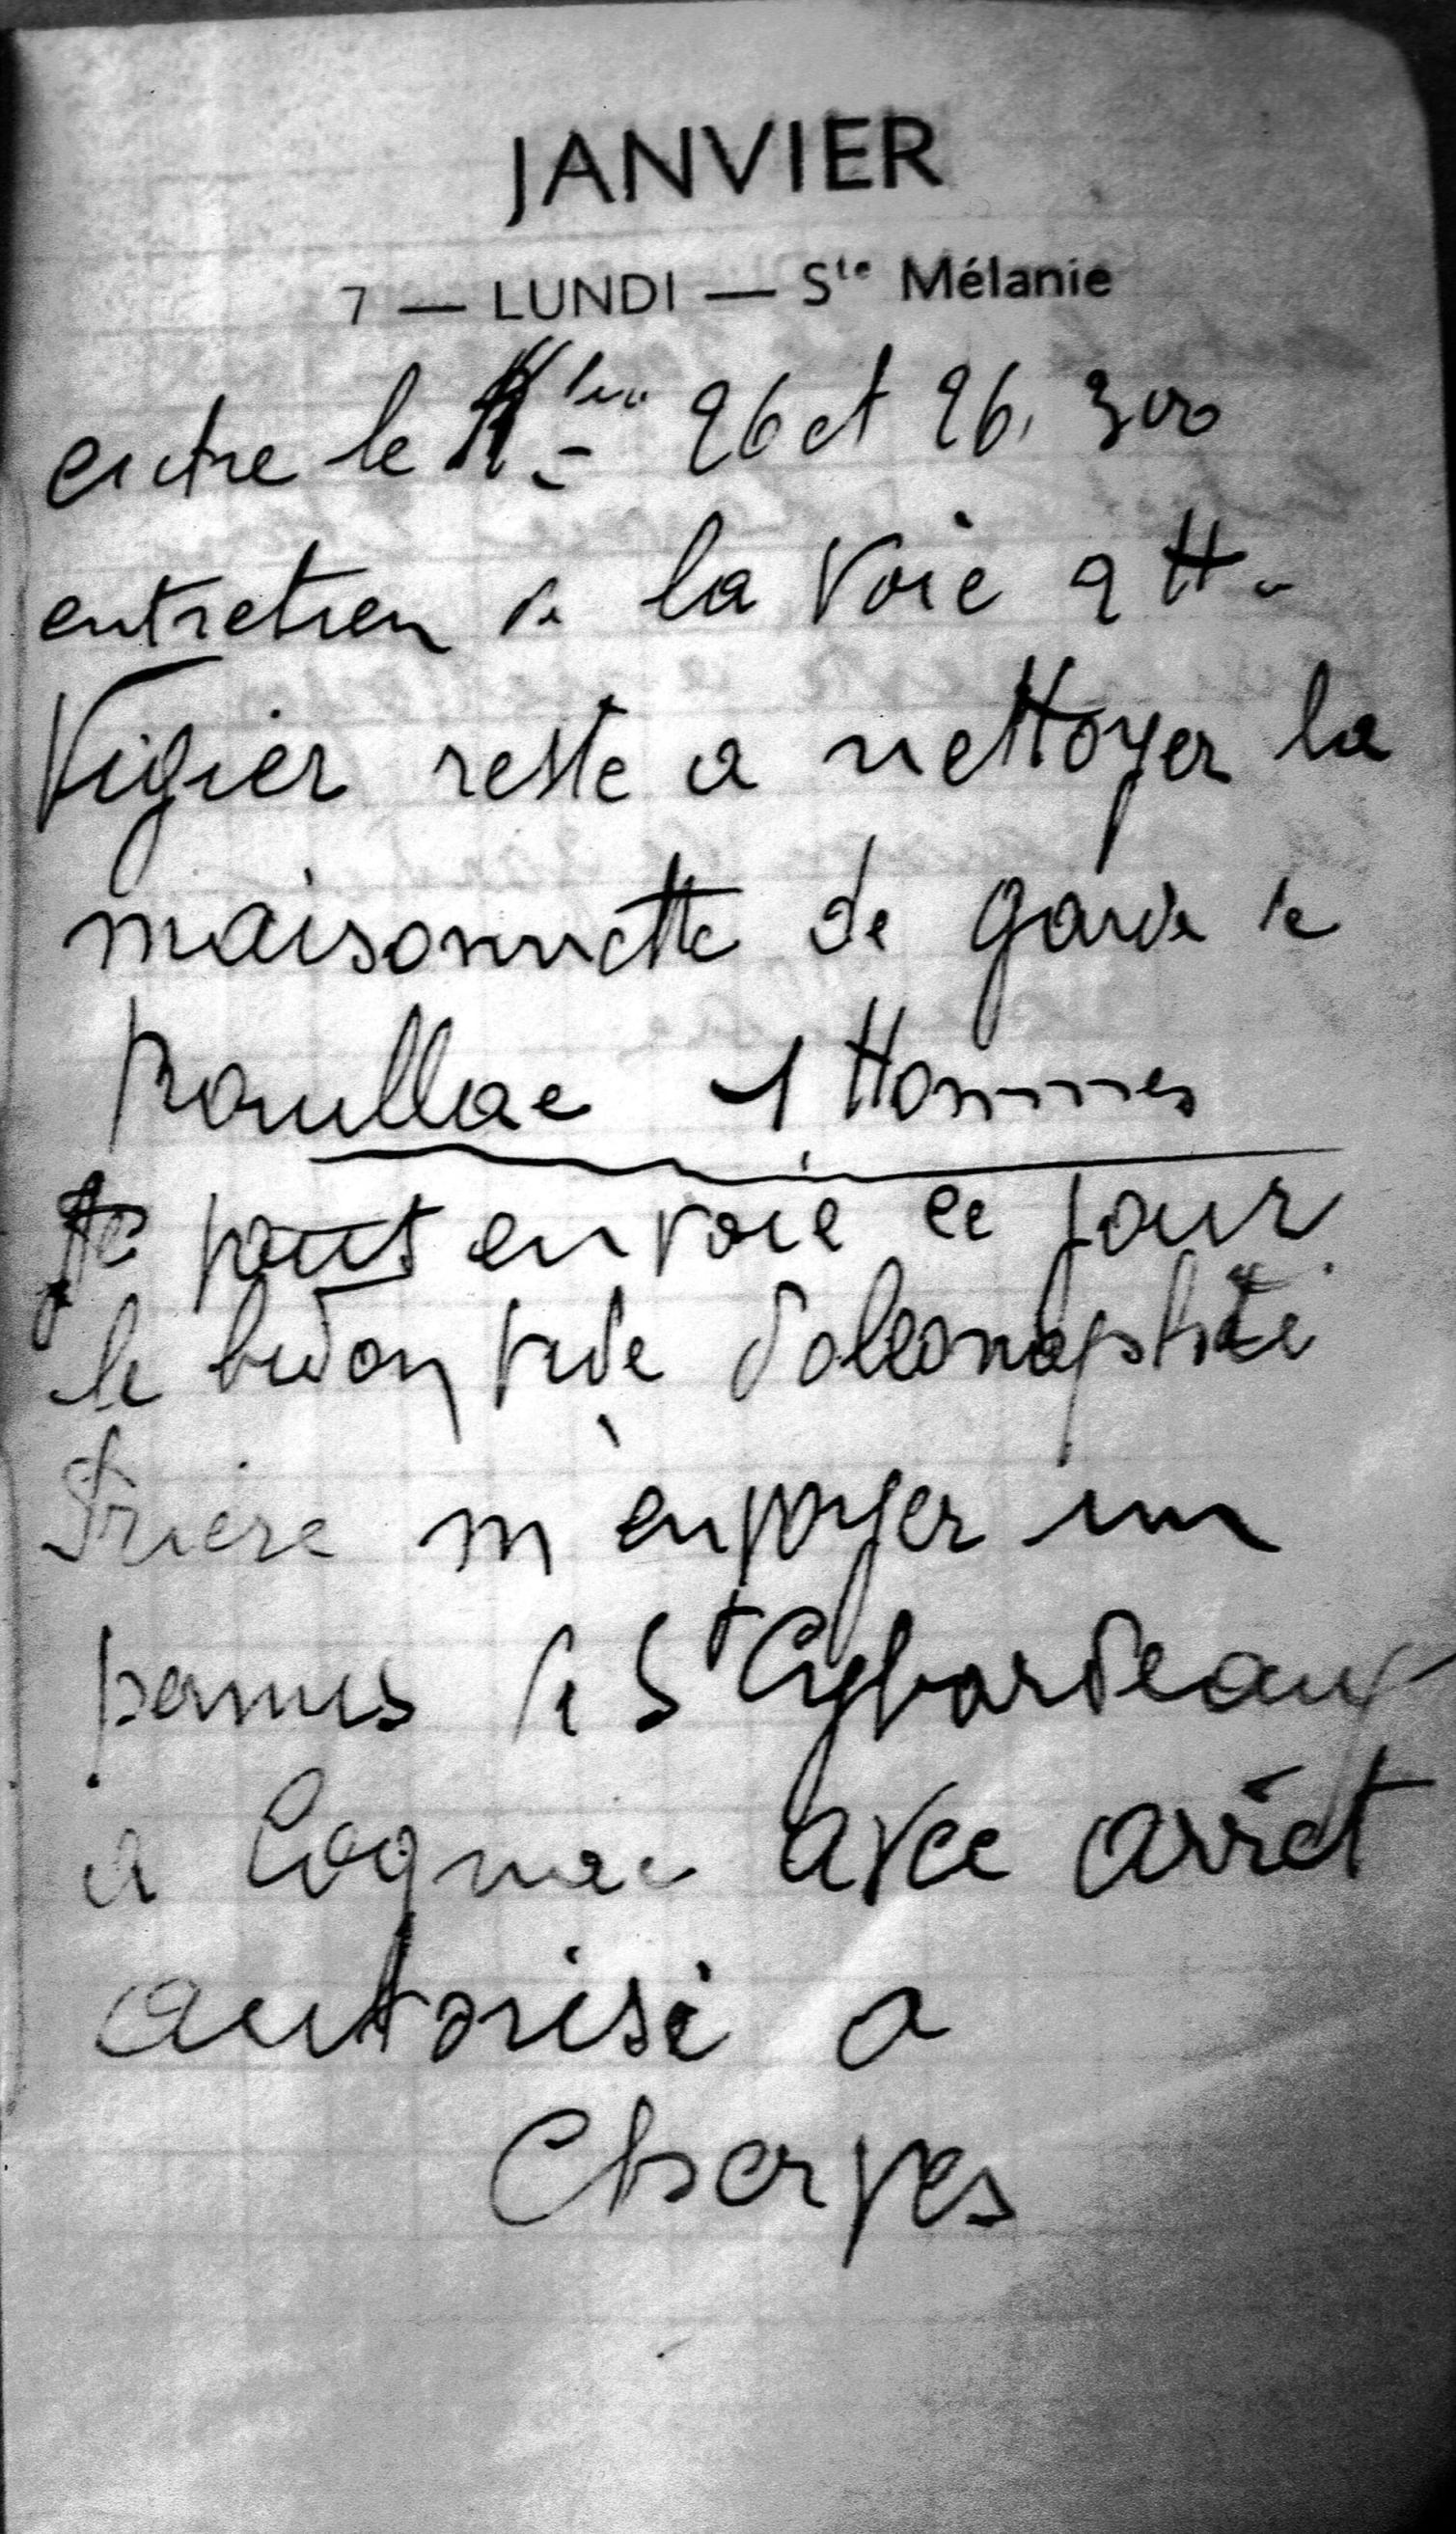 JANVIER
7 — LUNDI — Ste Mélanie
entre le 26 et 26. 300
entretien de la Voie 2 H
Vigier reste a nettoyer la
maisonnette de garde de
Rouillac 1 Hommes
Je vous envoie ce jour
le bidon vide
Prière m'envoyer un
permis de St Cybardeaux
a Cognac avec arrêt
autorisé a
Cherves